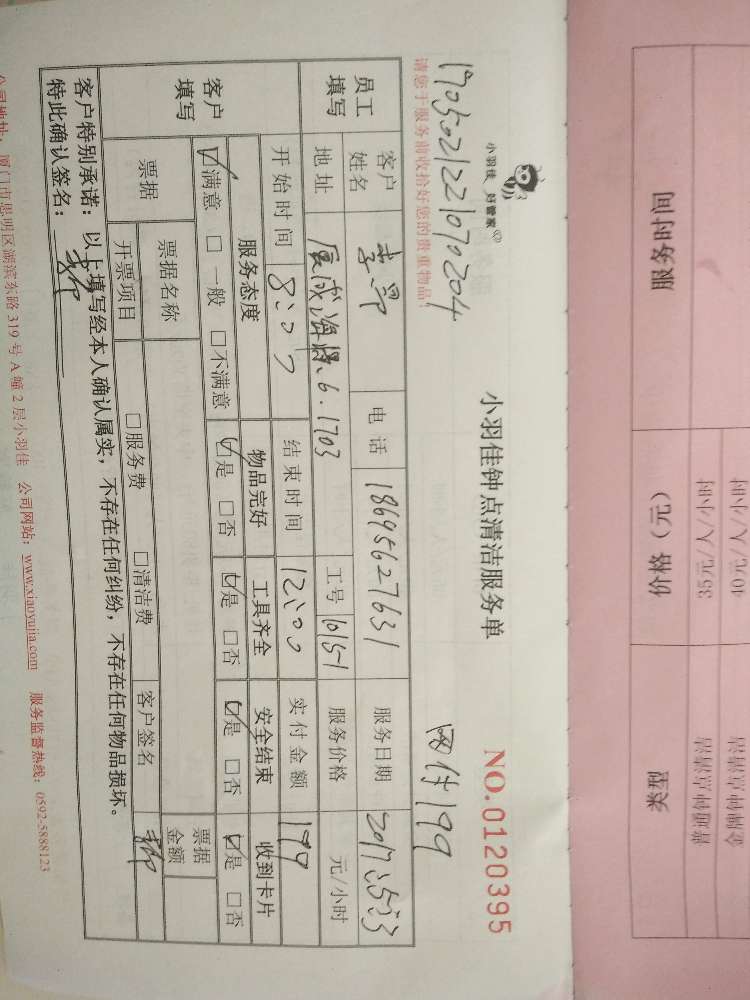 小羽佳 好管家
小羽佳钟点清洁服务单
NO.0120395
1705021221070204
网付199
请您于服务前收拾好您的贵重物品!
员工填写
客户姓名 电话 18695627631 服务日期 2017:5:3
地址 6.1703 工号 10151 服务价格 元/小时
开始时间 8:00 结束时间 12:00 实付金额 199
客户填写
服务态度 物品完好 工具齐全 安全结束 收到卡片
☑满意 □一般 □不满意 ☑是 □否 ☑是 □否 ☑是 □否 ☑是 □否
票据 票据名称 票据金额
开票项目 □服务费 □清洁费 客户签名
客户特别承诺:以上填写经本人确认属实,不存在任何纠纷,不存在任何物品损坏。
特此确认签名:
公司地址:厦门市思明区湖滨东路319号A幢2层小羽佳 公司网站:www.xiaoyujia.com 服务监督热线:0592-5888123
类型 价格(元) 服务时间
普通钟点清洁 35元/人/小时
金牌钟点清洁 40元/人/小时